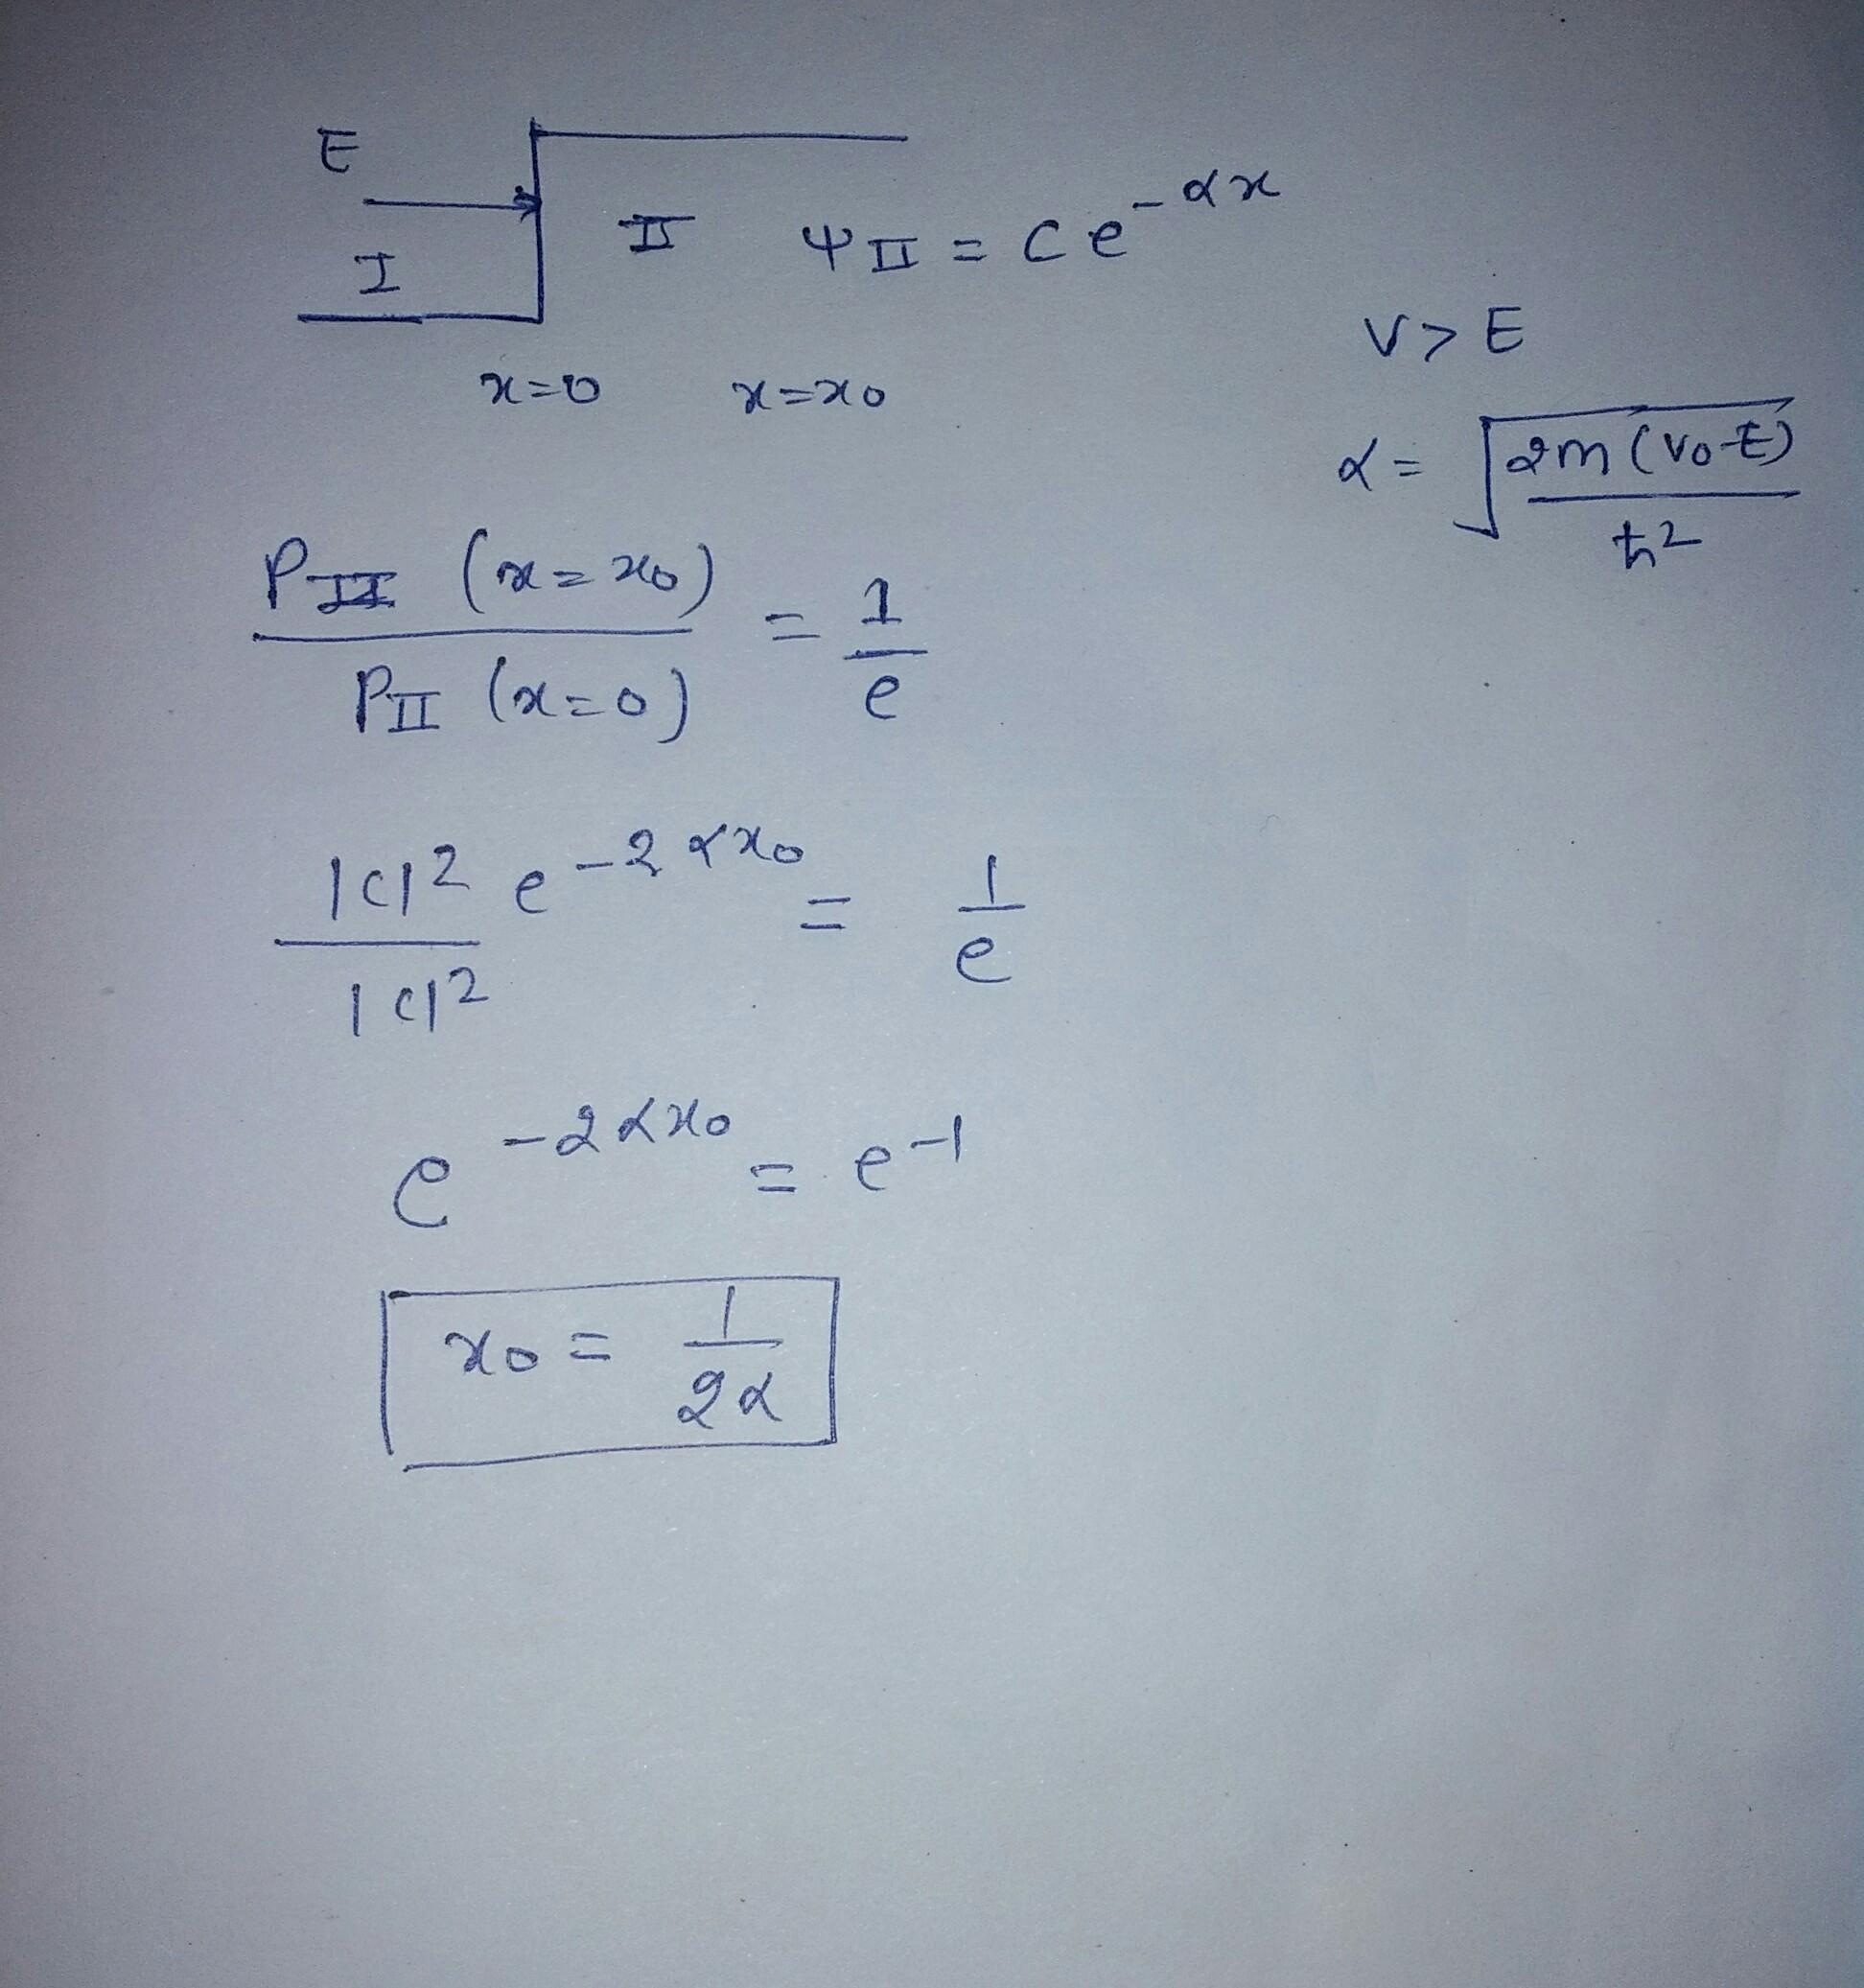 E
I
II ψII = Ce^-αx
V > E
x=0 x=x0
α = √(2m(V0-E)/ħ²)
PII (x=x0) / PII (x=0) = 1/e
|C|² e^-2αx0 / |C|² = 1/e
e^-2αx0 = e^-1
x0 = 1/2α